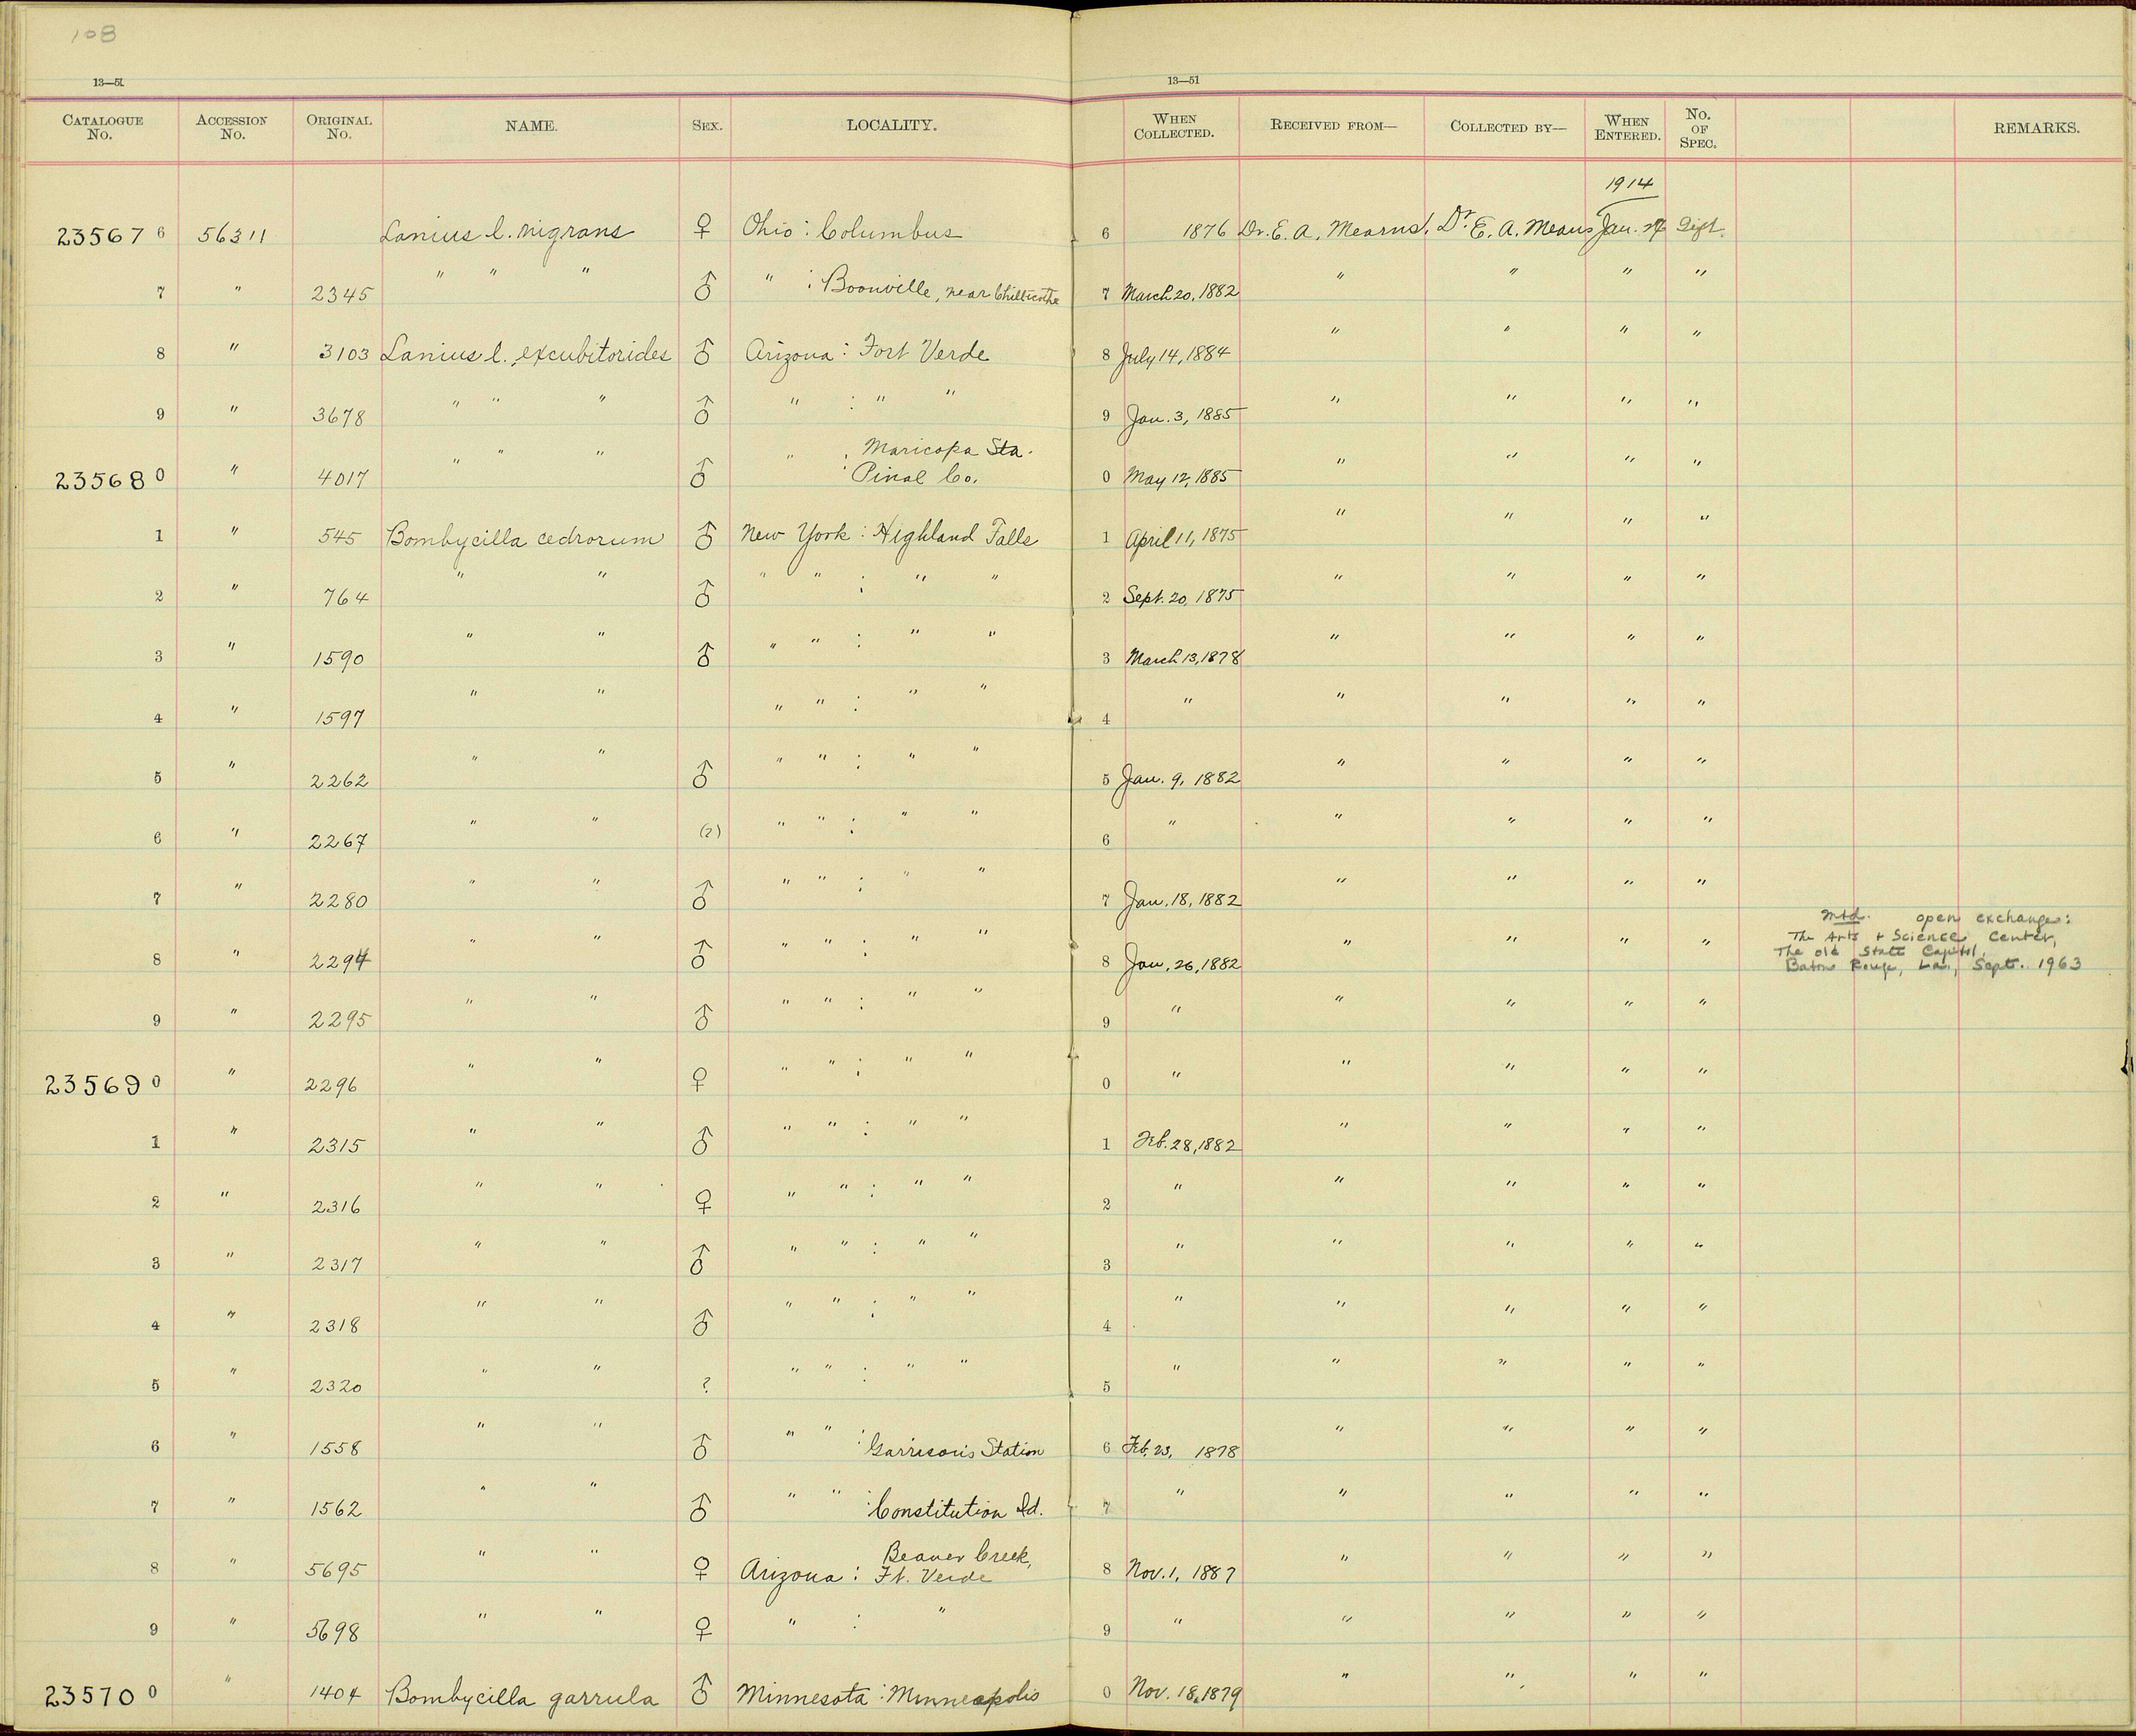 108
13—51 13—51
CATALOGUE No. ACCESSION No. ORIGINAL No. NAME. SEX. LOCALITY. WHEN COLLECTED. RECEIVED FROM— COLLECTED BY— WHEN ENTERED. No. OF SPEC. REMARKS.
1914
235676 56311 Lanius l. nigrans ♀ Ohio : Columbus 6 1876 Dr. E. A. Mearns. Dr. E. A. Mearns Jan. 27 Gift.
7 " 2345 " " " ♂ " : Boonville, near Chillicothe 7 March 20, 1882 " " " "
8 " 3103 Lanius l. excubitorides ♂ Arizona : Fort Verde 8 July 14, 1884 " " " "
9 " 3678 " " " ♂ " : " " 9 Jan. 3, 1885 " " " "
235680 " 4017 " " " ♂ " : Maricopa Sta. Pinal Co. 0 May 12, 1885 " " " "
1 " 545 Bombycilla cedrorum ♂ New York : Highland Falls 1 April 11, 1875 " " " "
2 " 764 " " ♂ " " : " " 2 Sept. 20, 1875 " " " "
3 " 1590 " " ♂ " " : " " 3 March 13, 1878 " " " "
4 " 1597 " " " " : " " 4 " " " " "
5 " 2262 " " ♂ " " : " " 5 Jan. 9, 1882 " " " "
6 " 2267 " " (?) " " : " " 6 " " " " "
7 " 2280 " " ♂ " " : " " 7 Jan. 18, 1882 " " " "
8 " 2294 " " ♂ " " : " " 8 Jan. 26, 1882 " " " "
mtd. open exchange:
The Arts + Science Center,
The old State Capitol,
Baton Rouge, La., Sept. 1963
9 " 2295 " " ♂ " " : " " 9 " " " " "
235690 " 2296 " " ♀ " " : " " 0 " " " " "
1 " 2315 " " ♂ " " : " " 1 Feb. 28, 1882 " " " "
2 " 2316 " " ♀ " " : " " 2 " " " " "
3 " 2317 " " ♂ " " : " " 3 " " " " "
4 " 2318 " " ♂ " " : " " 4 " " " " "
5 " 2320 " " ? " " : " " 5 " " " " "
6 " 1558 " " ♂ " " : Garrison's Station 6 Feb. 23, 1878 " " " "
7 " 1562 " " ♂ " " : Constitution Id. 7 " " " " "
8 " 5695 " " ♀ Arizona : Beaver Creek, Ft. Verde 8 Nov. 1, 1887 " " " "
9 " 5698 " " ♀ " : " 9 " " " " "
235700 " 1404 Bombycilla garrula ♂ Minnesota : Minneapolis 0 Nov. 18, 1879 " " " "